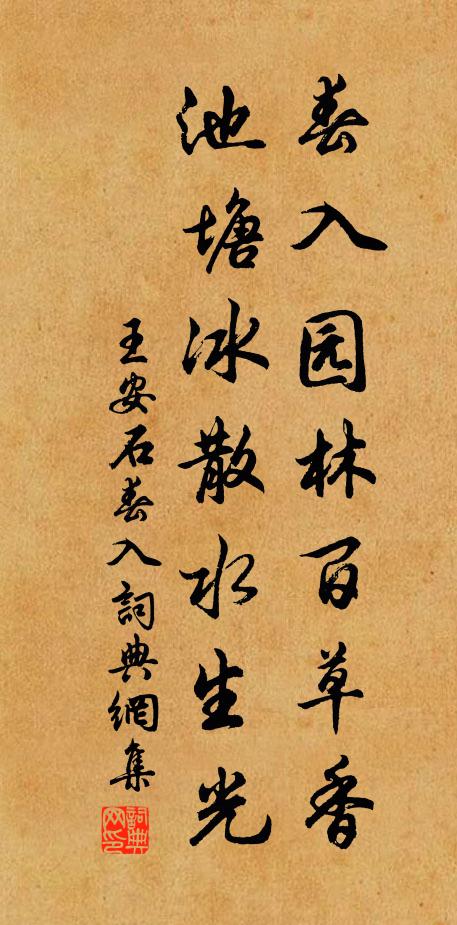 春入园林百草香
池塘冰散水生光
王安石春入詞典網集
詞典网印